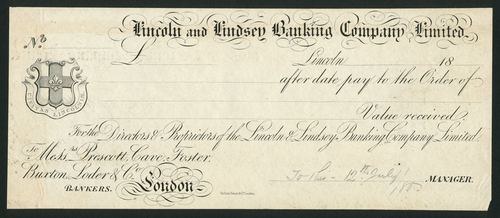 Lincoln and Lindsey Banking Company, Limited.
No.
£ Lincoln 18
after date pay to the Order of
Value received;
For the Directors & Proprietors of the Lincoln & Lindsey Banking Company Limited
To Messrs. Prescott, Cave, Foster,
Buxton, Loder & Co. London
BANKERS.
12th July
MANAGER.